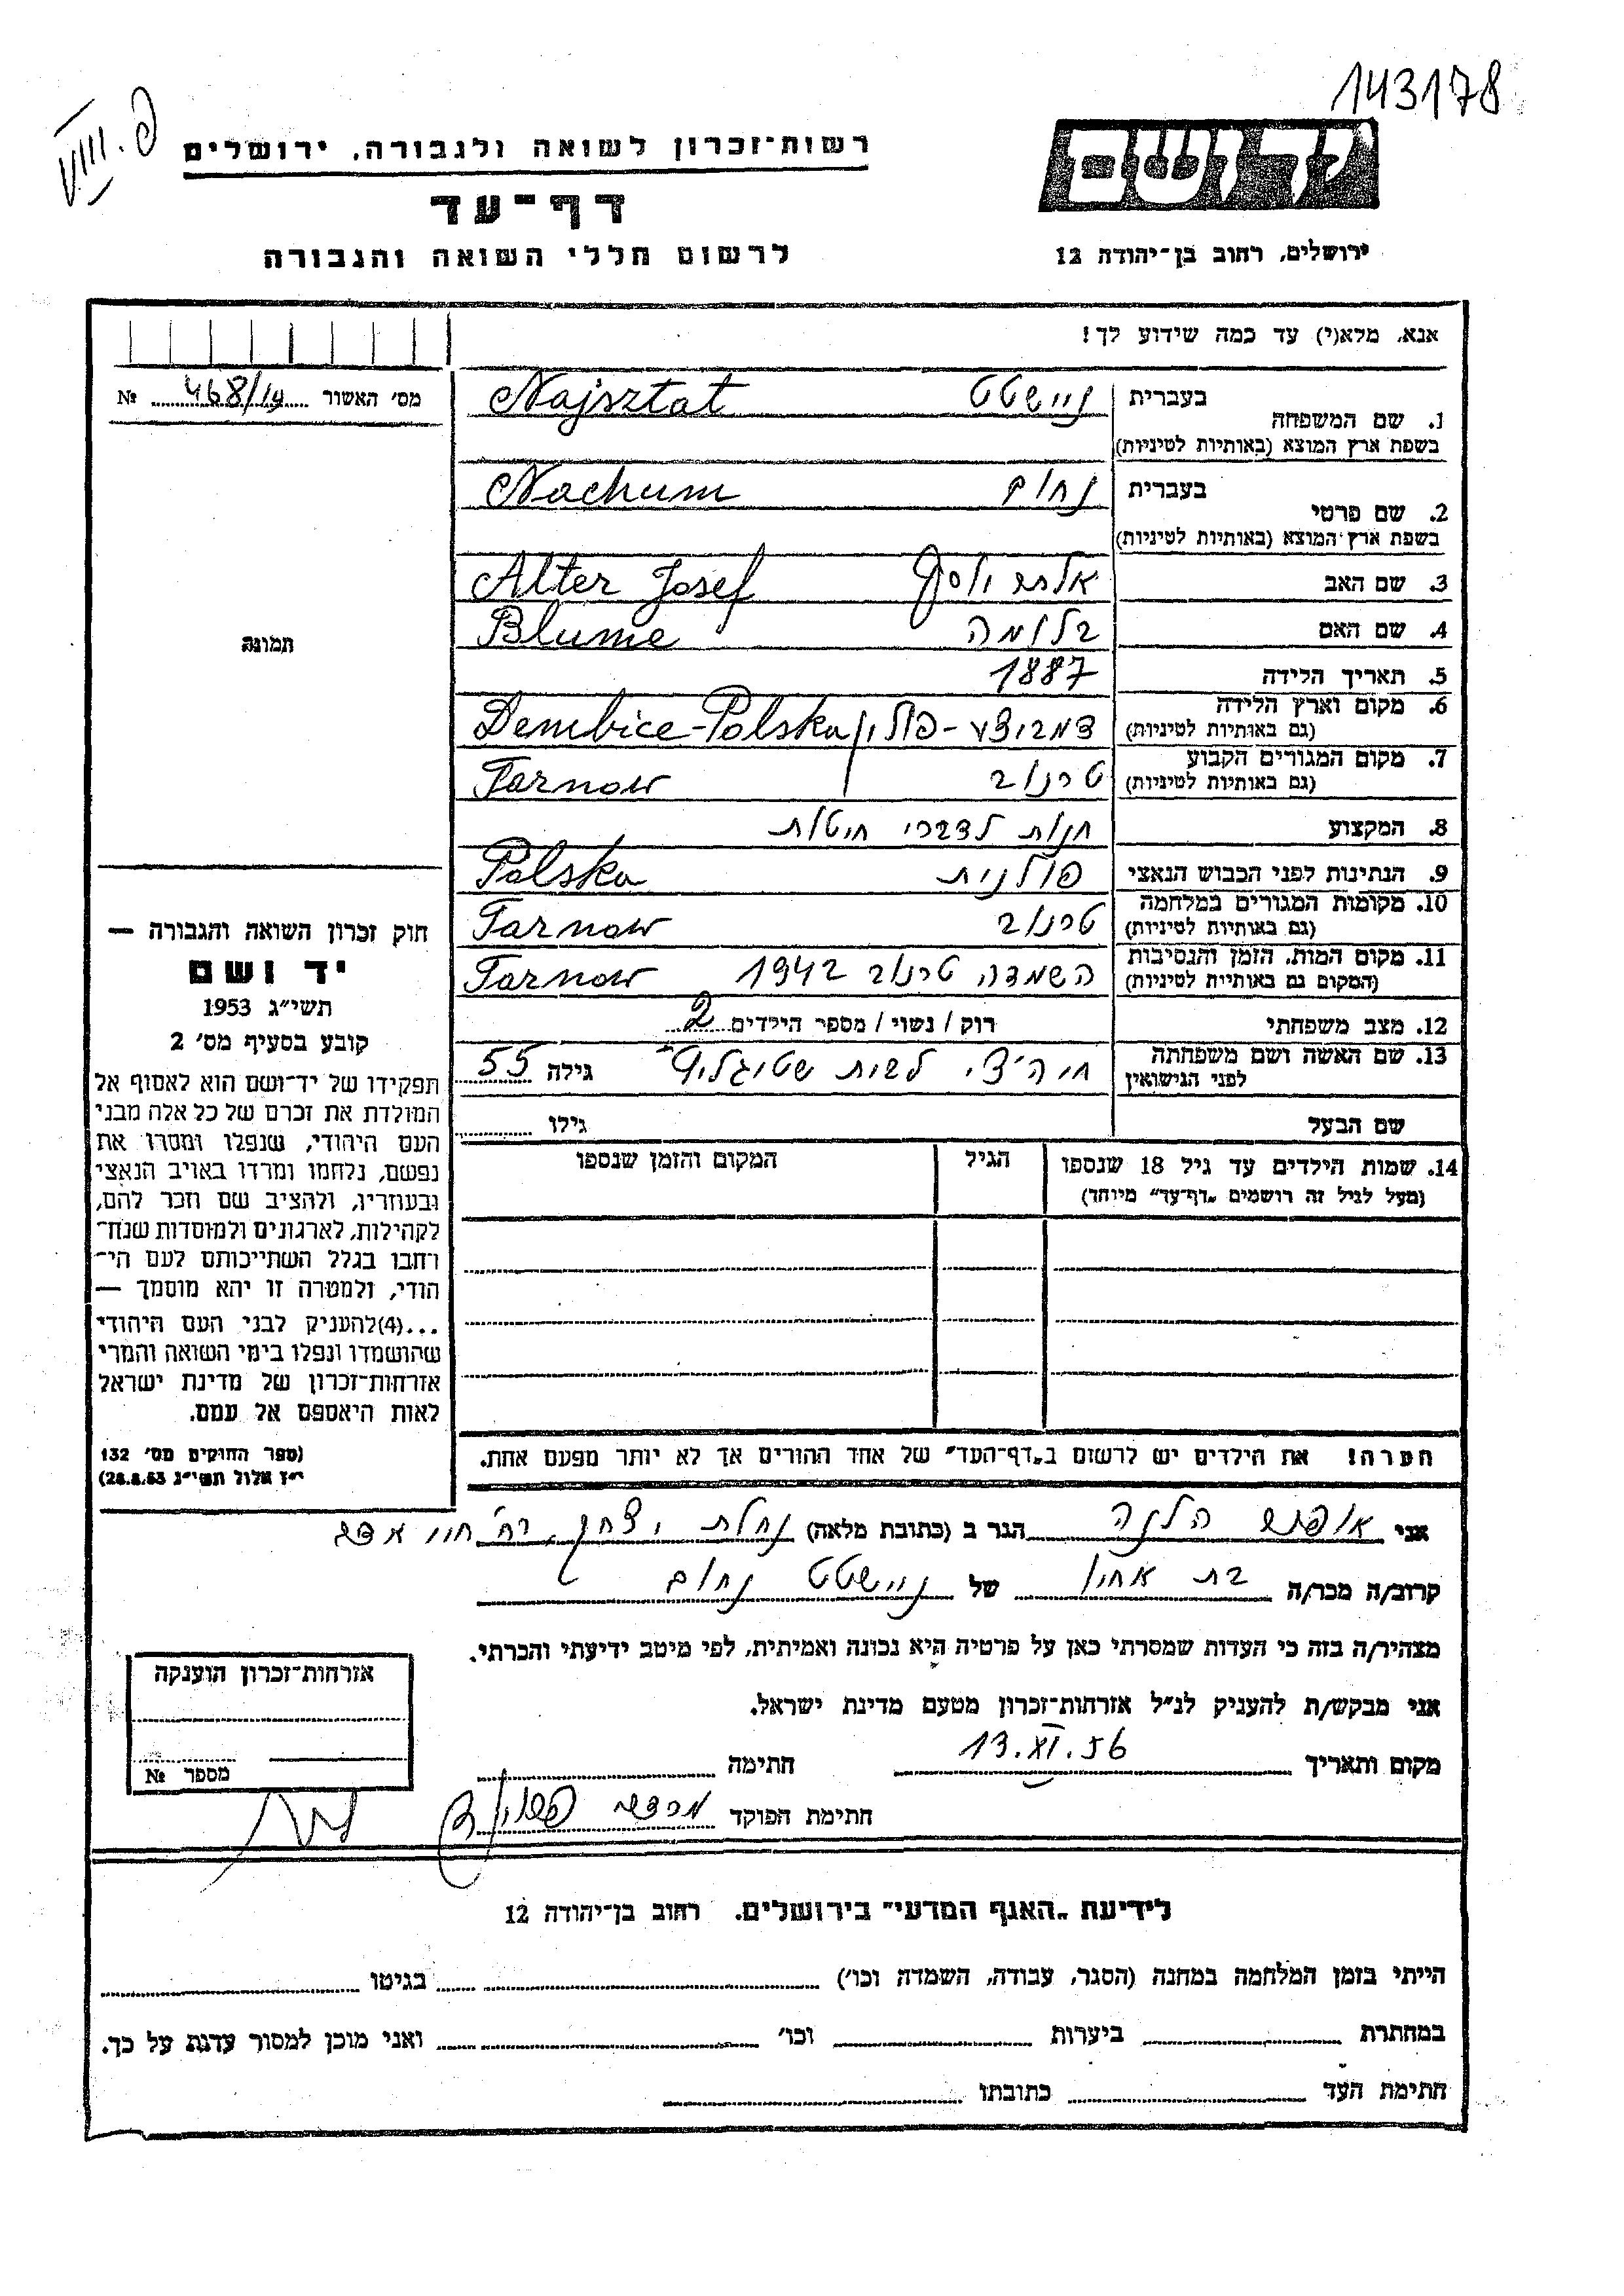 143178
VIII. פ
רשות־זכרון לשואה ולגבורה, ירושלים
דף־עד
לרשום חללי השואה והגבורה
יד ושם
ירושלים, רחוב בן־יהודה 12
אנא, מלא(י) עד כמה שידוע לך!
מס׳ האשור 468/14 №
1. שם המשפחה בעברית נײשטט Najsztat
בשפת ארץ המוצא (באותיות לטיניות)
2. שם פרטי בעברית נחום Nachum
בשפת ארץ המוצא (באותיות לטיניות)
3. שם האב אלתר יוסף Alter Josef
4. שם האם בלומה Blume
5. תאריך הלידה 1887
6. מקום וארץ הלידה דמביצע - פולין Dembice-Polska
(גם באותיות לטיניות)
7. מקום המגורים הקבוע טרנוב Tarnow
(גם באותיות לטיניות)
8. המקצוע חנות לדברי
9. הנתינות לפני הכבוש הנאצי פולנית Polska
10. מקומות המגורים במלחמה טרנוב Tarnow
(גם באותיות לטיניות)
11. מקום המות, הזמן והנסיבות השמדה טרנוב 1942 Tarnow
(המקום גם באותיות לטיניות)
12. מצב משפחתי רוק / נשוי / מספר הילדים 2
13. שם האשה ושם משפחתה
לפני הנישואין לבית גילה 55
שם הבעל גילו
14. שמות הילדים עד גיל 18 שנספו הגיל המקום והזמן שנספו
(מעל לגיל זה רושמים „דף־עד” מיוחד)
תמונה
חוק זכרון השואה והגבורה —
יד ושם
תשי״ג 1953
קובע בסעיף מס׳ 2
תפקידו של יד־ושם הוא לאסוף אל
המולדת את זכרם של כל אלה מבני
העם היהודי, שנפלו ומסרו את
נפשם, נלחמו ומרדו באויב הנאצי
ובעוזריו, ולהציב שם וזכר להם,
לקהילות, לארגונים ולמוסדות שנח־
רחבו בגלל השתייכותם לעם הי־
הודי, ולמטרה זו יהא מוסמך —
...(4)להעניק לבני העם היהודי
שהושמדו ונפלו בימי השואה והמרי
אזרחות־זכרון של מדינת ישראל
לאות היאספם אל עמם.
(ספר החוקים מס׳ 132
י״ז אלול תשי״ג 28.8.53)
הערה! את הילדים יש לרשום ב„דף־העד” של אחד ההורים אך לא יותר מפעם אחת.
אני הלנה הגר ב (כתובת מלאה) נחלת יצחק, רח׳
קרוב/ה מכר/ה בת אחיו של נײשטט נחום
מצהיר/ה בזה כי העדות שמסרתי כאן על פרטיה היא נכונה ואמיתית, לפי מיטב ידיעתי והכרתי.
אני מבקש/ת להעניק לנ״ל אזרחות־זכרון מטעם מדינת ישראל.
מקום ותאריך 13.XI.56 חתימה
חתימת הפוקד
אזרחות־זכרון הוענקה
מספר №
לידיעת „האגף המדעי” בירושלים, רחוב בן־יהודה 12
הייתי בזמן המלחמה במחנה (הסגר, עבודה, השמדה וכו׳) בגיטו
במחתרת ביערות וכו׳ ואני מוכן למסור עדות על כך.
חתימת העד כתובתו